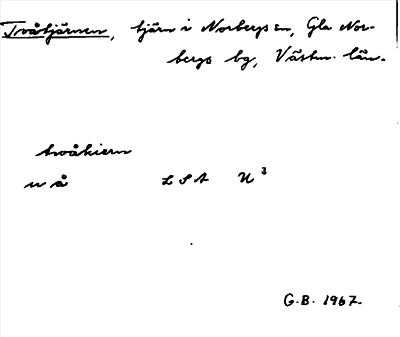 Tvåtjärnen, tjärn i Norbergs sn, Gla Nor-
bergs bg, Västm. län.
twåkiern
u å LSA U³
G.B. 1967.